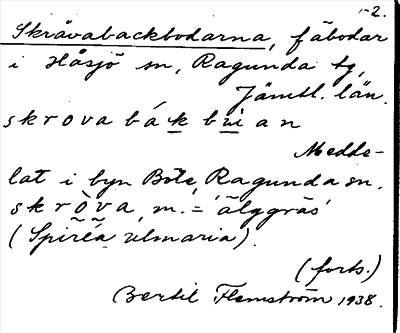 -2.
Skråvabackbodarna, fäbodar
i Håsjö sn, Ragunda tg,
Jämtl. län.
skrova bák
Medde-
lat i byn Böle, Ragunda sn.
skròva, m. = 'älggräs'
(Spiréa ulmaria).
(forts.)
Bertil Flemström 1938.